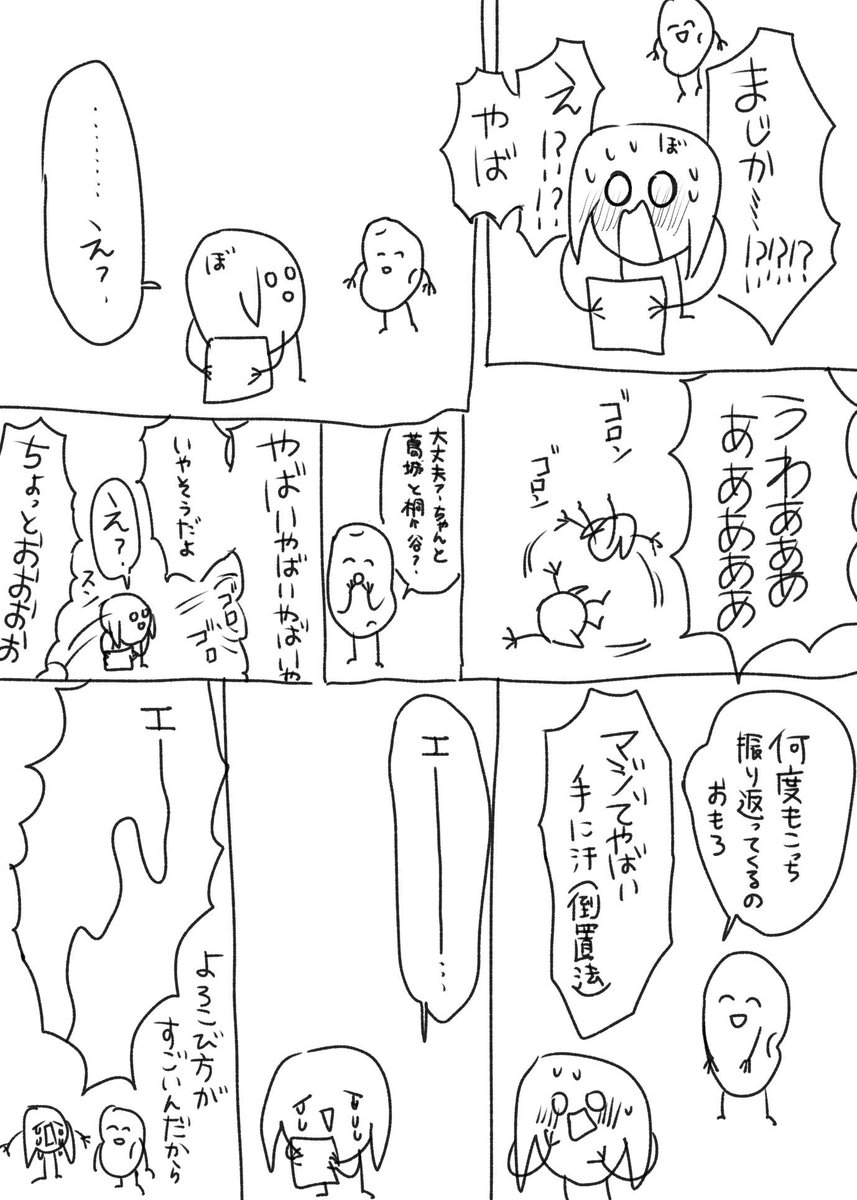 まじか〜〜!?!?!?
え!?!?!?
やば
ぼ
………え?
ぼ
うわあああ
あああああ
ゴロン
ゴロン
大丈夫?ちゃんと
葛城と桐ヶ谷?
やばいやばいやばいや
いやそうだよ
ゴロ
ゴロ
え?
スン
ちょっとおおおお
何度もこっち
振り返ってくるの
おもろ
マジでやばい
手に汗(倒置法)
エーーー…
エーー
よろこび方が
すごいんだから